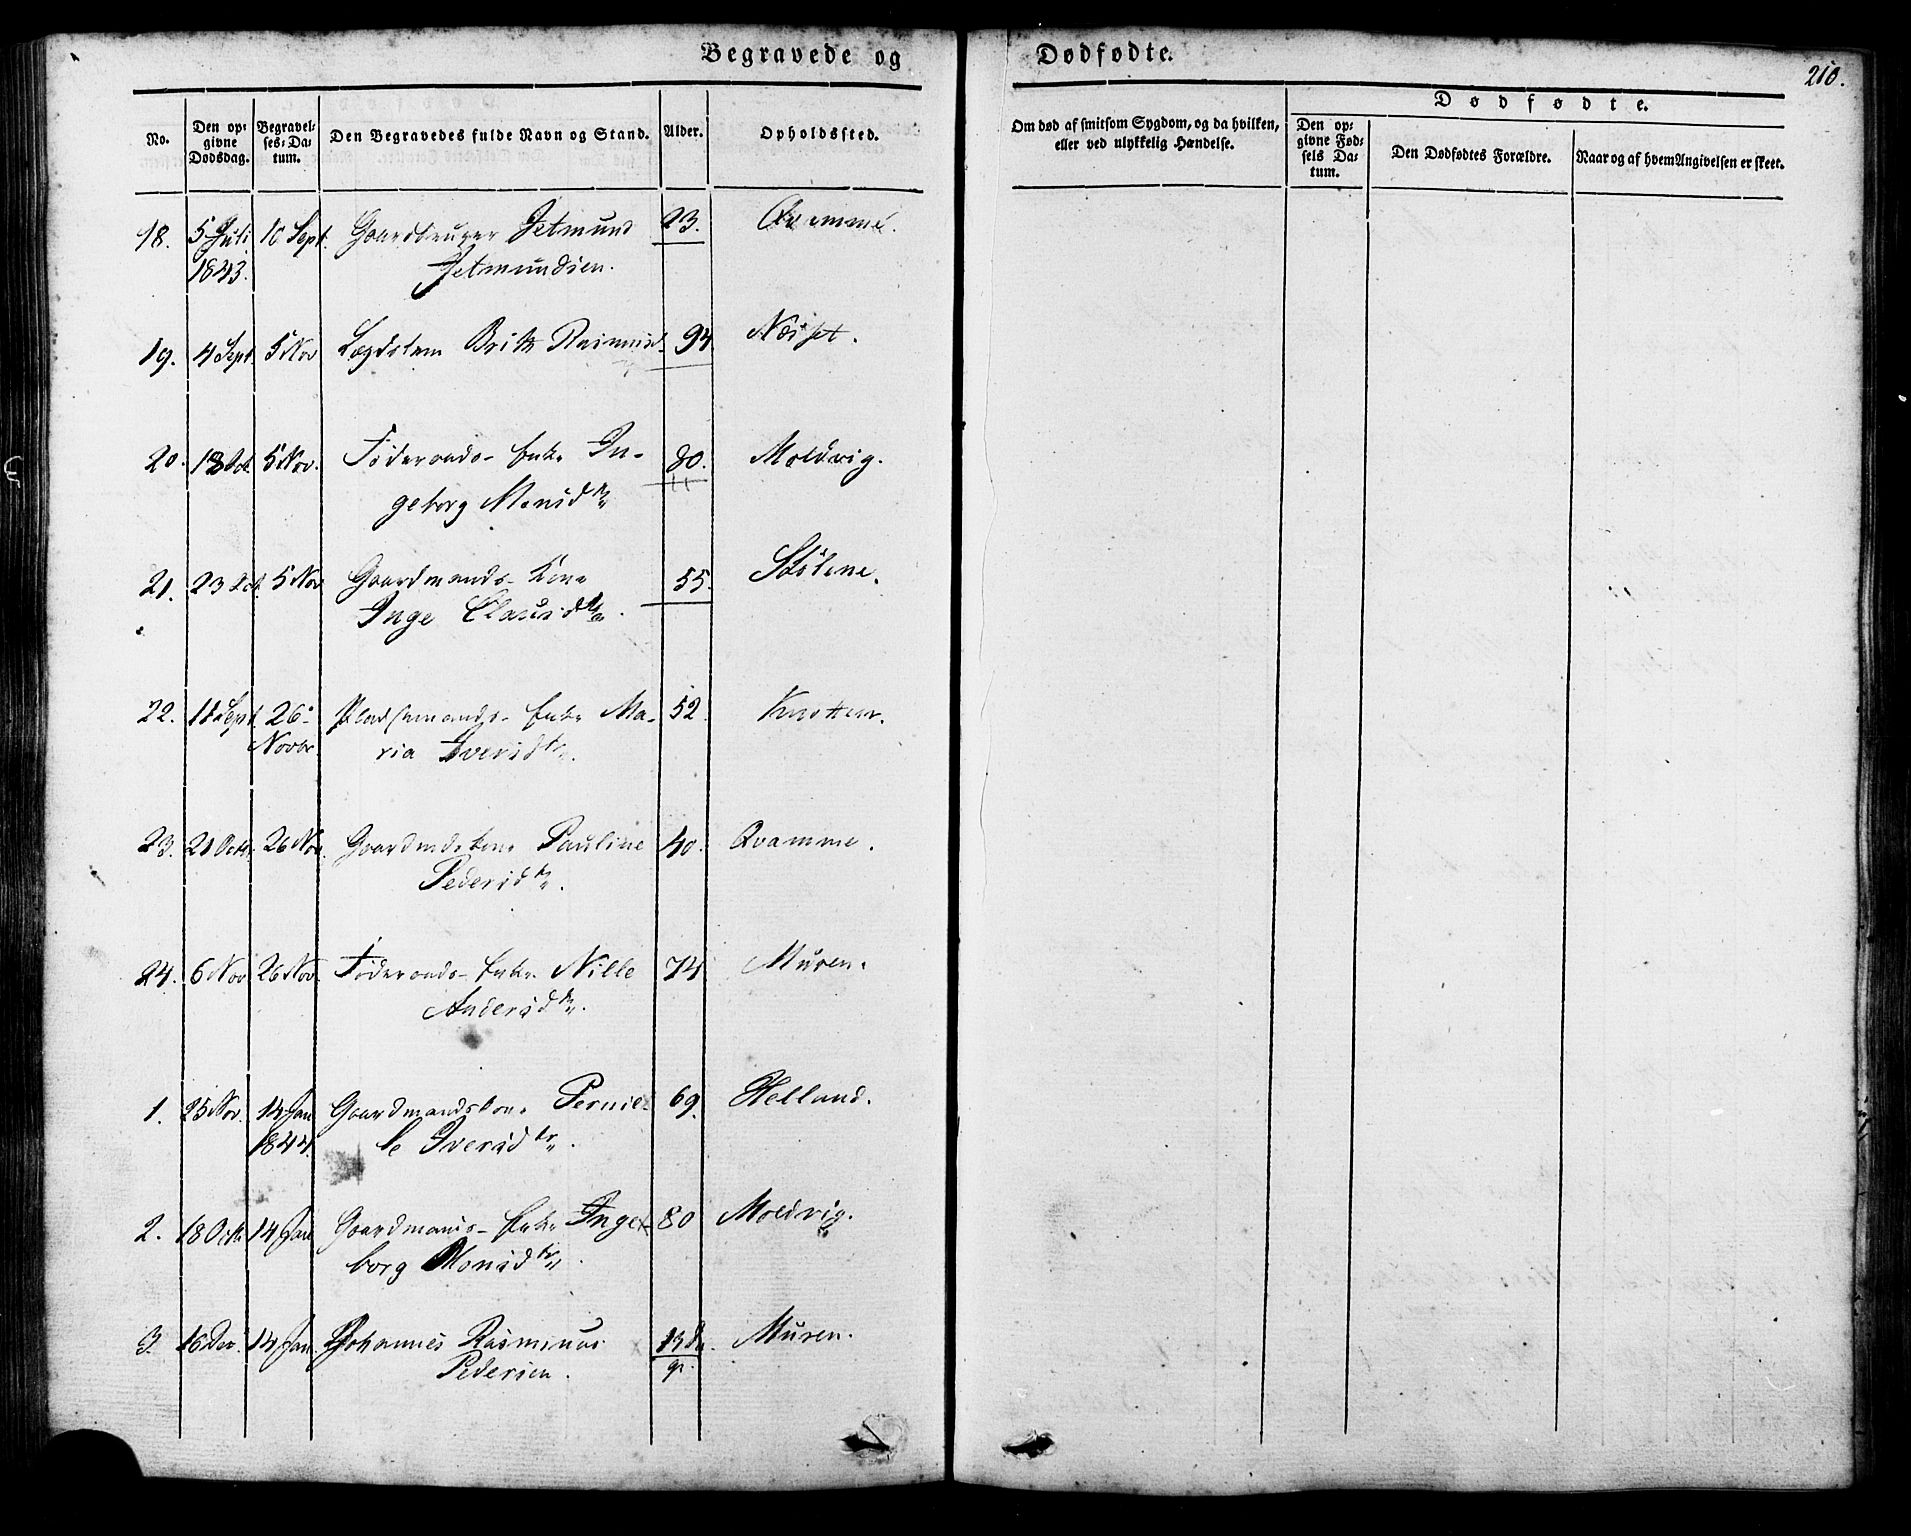 Begravede og Dødfødte.
210.
No. Den opgivne Dødsdag. Begravelses-Datum. Den Begravedes fulde Navn og Stand. Alder. Opholdssted.
Om død af smitsom Sygdom, og da hvilken, eller ved ulykkelig Hændelse.
Dødfødte.
Den opgivne Fødsels Datum. Den Dødfødtes Forældre. Naar og af hvem Angivelsen er skeet.
18. 5 Juli 10 Sept. Gaardbruger Jetmund 23. Qvamme.
1843. Jetmundsen.
19. 4 Sept. 5 Nov Lægdslem Brith Rasmusd 94 Næsset.
20. 18 Oct. 5 Nov. Føderaads-Enke In- 80. Moldvig.
geborg Monsdtr
21. 23 Oct. 5 Nov Gaardmands-Kone 55. Stølene.
Inge Clausdtr.
22. 11 Sept 26- Pladsmands-Enke Ma- 52.
Novbr. ria Iversdtr.
23. 21 Octb. 26 Nov. Gaardmds Kone Pauline 40. Qvamme.
Pedersdtr.
24. 6 Nov 26 Nov. Føderaads-Enke Nille 74. Muren.
Andersdtr.
1. 25 Nov. 14 Jan Gaardmandskone Pernil- 69. Helland.
1844. le Iversdtr.
2. 18 Octb 14 Jan Gaardmands-Enke Inge- 80 Moldvig.
borg Monsdtr.
3. 16 Dec. 14 Jan. Johannes Rasmus 13 D. Muren.
Pedersen. gl.